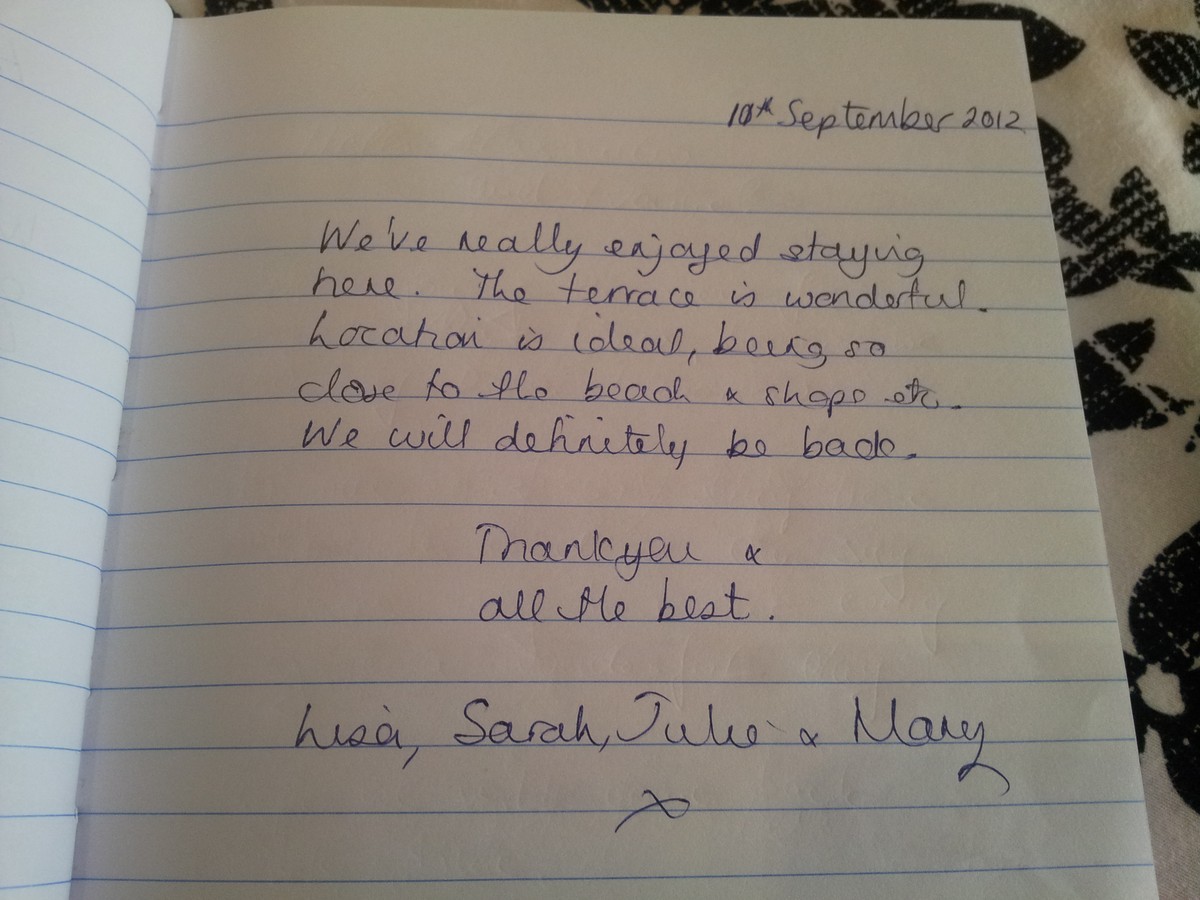 10th September 2012
We've really enjoyed staying
here. The terrace is wonderful.
Location is ideal, being so
close to the beach & shops etc.
We will definitely be back.
Thankyou &
all the best.
Lisa, Sarah, Julie & Mary
x